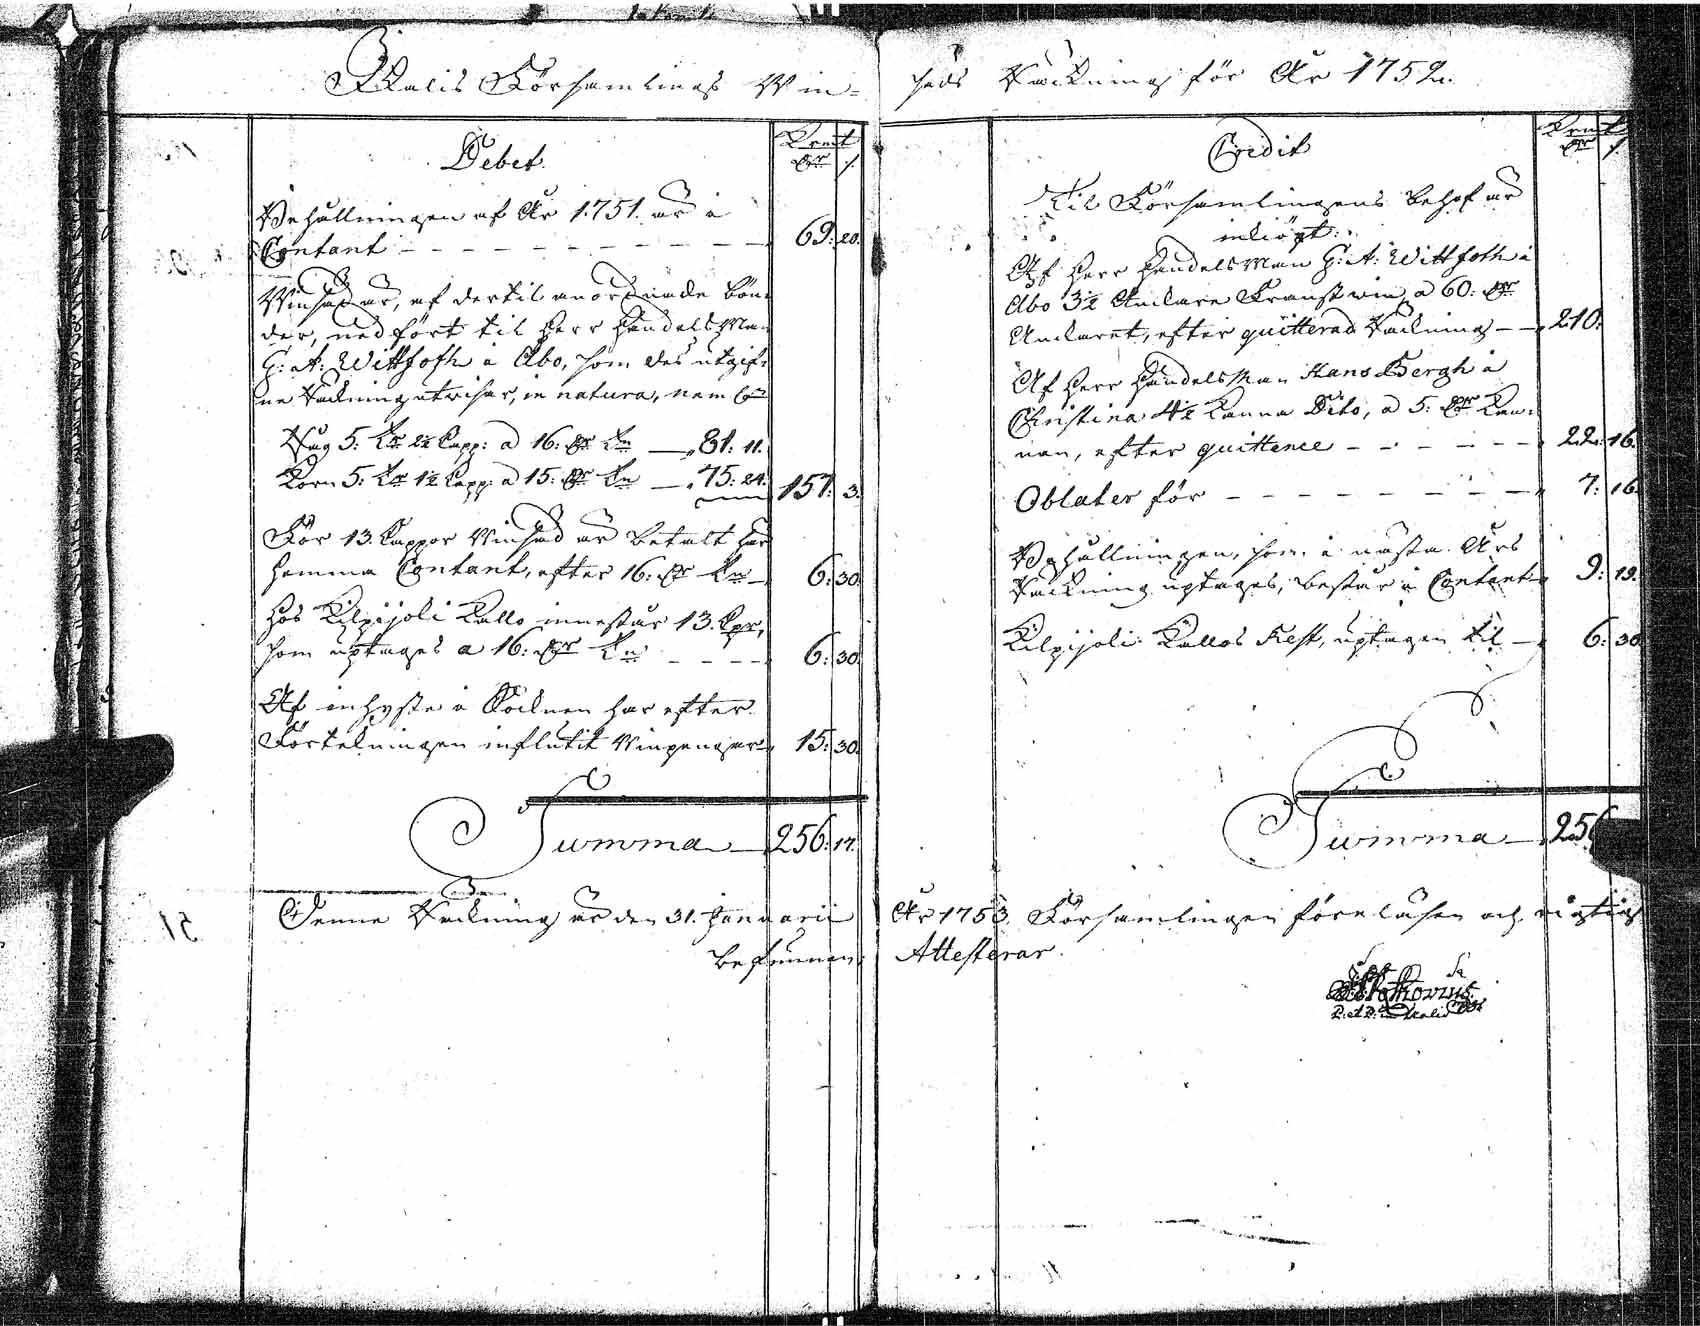 Ikalis Församlings Win=
Debet.
Kmt
Dr /.
Behållningen af År 1751. är i
Contant 69: 20.
Winsäd är, af dertil anordnade bön-
der, nedfört til Herr Handelsman
G: A: Wittfoth i Åbo, som des utgif-
ne Räkning utvisar, in natura, neml.
Råg 5: Tr 2½ Kapp: a 16: Dr Tn 81: 11.
Korn 5: Tr 1½ Kapp: a 15: Dr Tn 75: 24. 157: 3.
För 13. Kappor Winsäd är betalt här
hemma Contant, efter 16: Dr Tn 6: 30.
Hos Kilpijoki Kallo innestår 13. Kpr,
som uptages a 16: Dr Tn 6: 30.
Af inhyste i Socknen har efter
Förtekningen influtit Winpengar 15: 30.
Summa 256: 17.
Denne Räkning är den 31. Januarii
befunnen;
säds Räkning för År 1752.
Credit
Kmt
Dr /.
Til Församlingens behof är
inköpt:
Af Herr Handelsman G: A: Wittfoth i
Åbo 3½ Anckare Franskt win, a 60: Dr
Anckaret, efter quitterad Räkning 210:
Af Herr Handelsman Hans Bergh i
Christina 4½ Kanna Dito, a 5: Dr Kan-
nan, efter quittence 22: 16.
Oblater för 7: 16.
Behållningen, som i nästa Års
Räkning uptages, består i Contant 9: 19.
Kilpijoki Kallos Rest, uptagen til 6: 30.
Summa 256
År 1753. Församlingen föreläsen och rigtig
Attesterar.